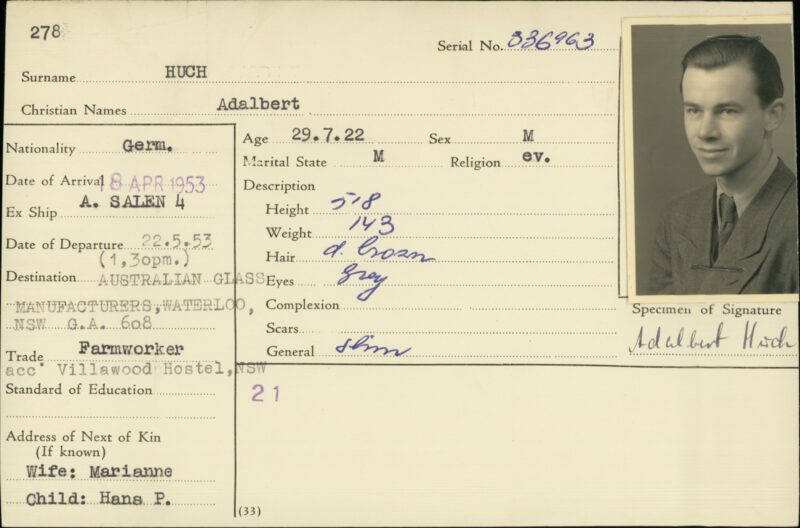 278
Serial No. 336963
Surname HUCH
Christian Names Adalbert
Nationality Germ.
Date of Arrival 8 APR 1953
Ex Ship A. SALEN 4
Date of Departure 22.5.53
(1,30pm.)
Destination AUSTRALIAN GLASS
MANUFACTURERS, WATERLOO,
NSW G.A. 608
Trade Farmworker
acc Villawood Hostel, NSW
Standard of Education
Address of Next of Kin
(If known)
Wife: Marianne
Child: Hans P.
Age 29.7.22 Sex M
Marital State M Religion ev.
Description
Height 5'8
Weight 143
Hair d. brown
Eyes grey
Complexion
Scars
General slim
21
(33)
Specimen of Signature
Adalbert Huch